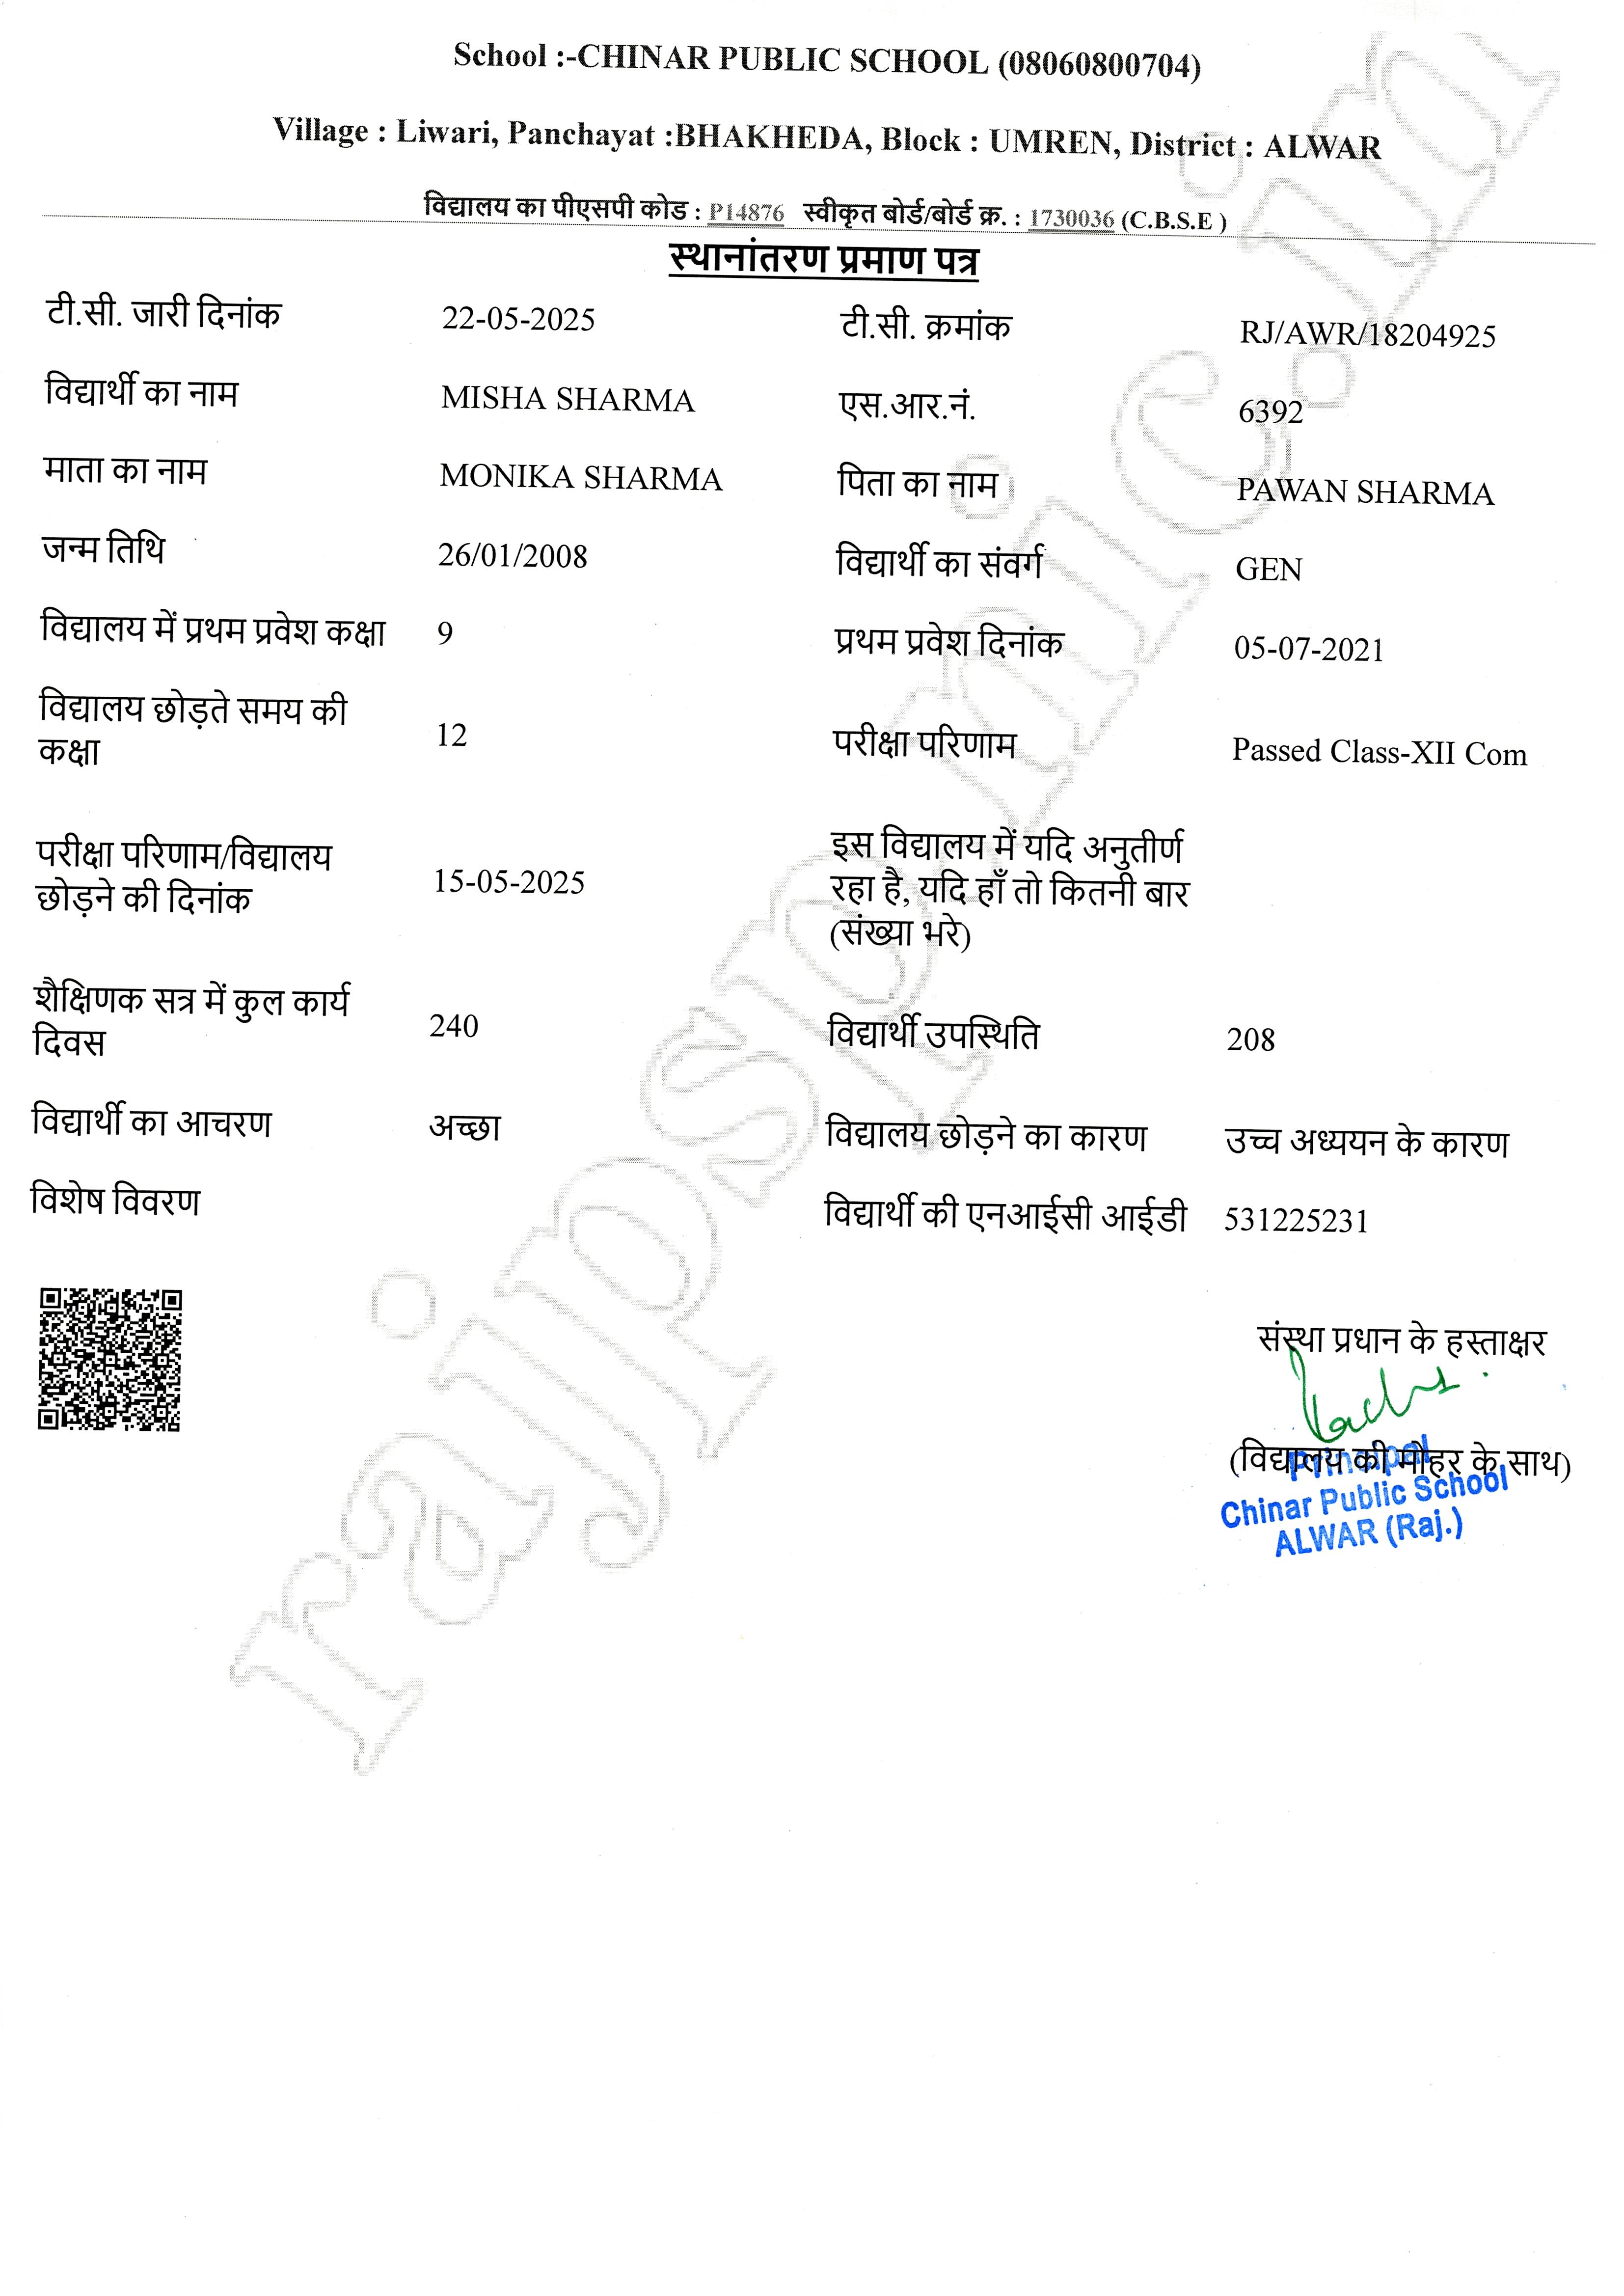 School :-CHINAR PUBLIC SCHOOL (08060800704)
Village : Liwari, Panchayat :BHAKHEDA, Block : UMREN, District : ALWAR
विद्यालय का पीएसपी कोड : P14876 स्वीकृत बोर्ड/बोर्ड क्र. : 1730036 (C.B.S.E )
स्थानांतरण प्रमाण पत्र
टी.सी. जारी दिनांक 22-05-2025 टी.सी. क्रमांक RJ/AWR/18204925
विद्यार्थी का नाम MISHA SHARMA एस.आर.नं. 6392
माता का नाम MONIKA SHARMA पिता का नाम PAWAN SHARMA
जन्म तिथि 26/01/2008 विद्यार्थी का संवर्ग GEN
विद्यालय में प्रथम प्रवेश कक्षा 9 प्रथम प्रवेश दिनांक 05-07-2021
विद्यालय छोड़ते समय की
कक्षा 12 परीक्षा परिणाम Passed Class-XII Com
परीक्षा परिणाम/विद्यालय
छोड़ने की दिनांक 15-05-2025
इस विद्यालय में यदि अनुतीर्ण
रहा है, यदि हाँ तो कितनी बार
(संख्या भरे)
शैक्षिणक सत्र में कुल कार्य
दिवस 240 विद्यार्थी उपस्थिति 208
विद्यार्थी का आचरण अच्छा विद्यालय छोड़ने का कारण उच्च अध्ययन के कारण
विशेष विवरण विद्यार्थी की एनआईसी आईडी 531225231
संस्था प्रधान के हस्ताक्षर
(विद्यालय की मोहर के साथ)
Principal
Chinar Public School
ALWAR (Raj.)
rajpsp.nic.in